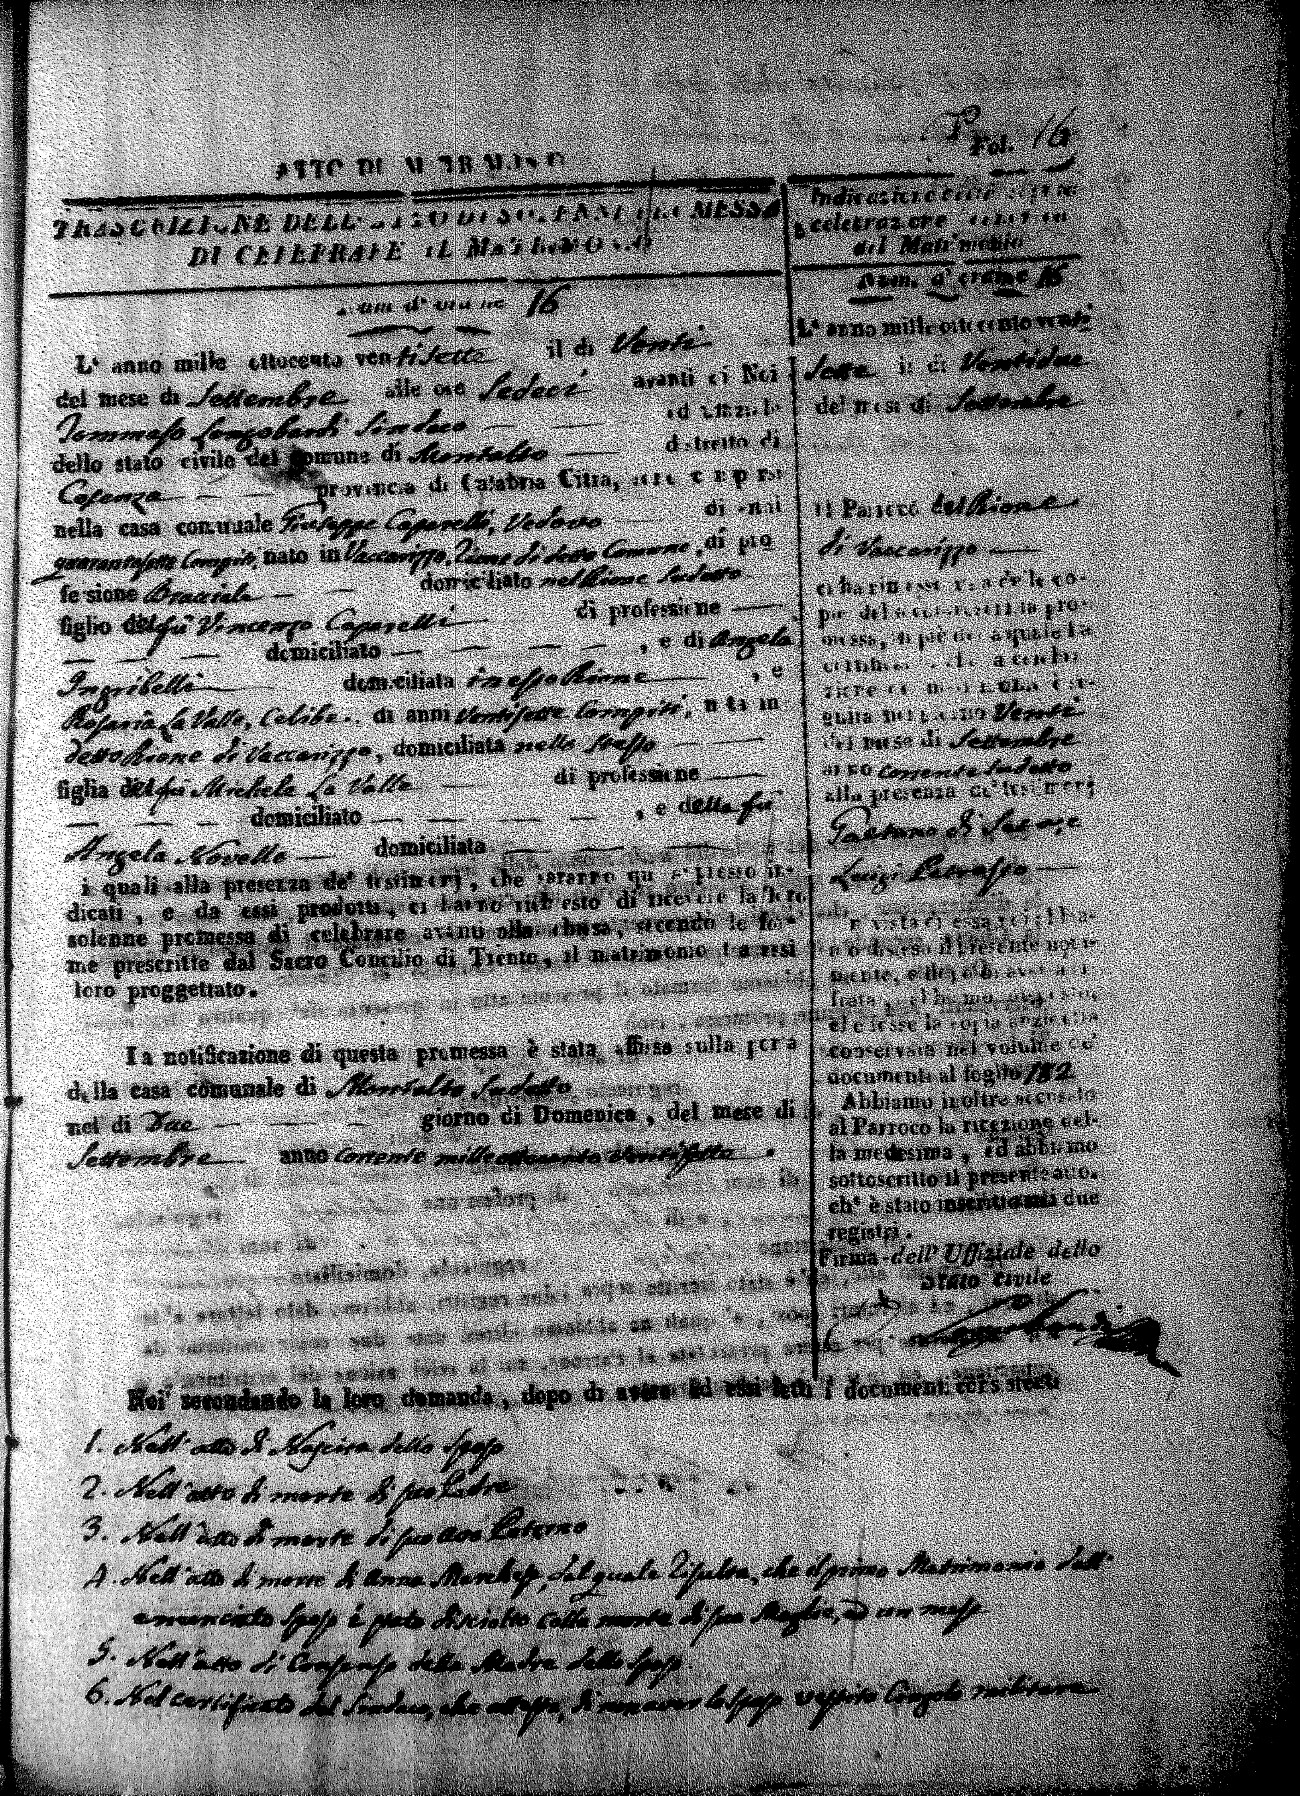 Fol. 16
ATTO DI MATRIMONIO
TRASCRIZIONE DELL'ATTO DI SOLENNE PROMESSA
DI CELEBRARE IL MATRIMONIO
Num. d'ordine 16
L' anno mille ottocento ventisette il di Venti
del mese di Settembre alle ore Sedeci avanti di Noi
Tommaso Longobardi Sindaco ed uffiziale
dello stato civile del comune di Montalto distretto di
Cosenza provincia di Calabria Citra,
nella casa comunale Giuseppe Caparelli, Vedovo di anni
quarantasette Compiti, nato in Vaccarizzo, Rione di detto Comune, di pro
fessione Bracciale domiciliato nel Rione Sudetto
figlio del fu Vincenzo Caparelli di professione
domiciliato , e di Angela
Ingribelli domiciliata in esso Rione , e
Rosaria La Valle, Celibe di anni Ventisette Compiti, nata in
detto Rione di Vaccarizzo, domiciliata nello stesso
figlia del fu Michele La Valle di professione
domiciliato , e della fu
Angela Novello domiciliata
i quali alla presenza de' testimonj, che saranno qui appresso in-
dicati, e da essi prodotti, ci hanno richiesto di ricevere la loro
solenne promessa di celebrare avanti alla chiesa, secondo le for-
me prescritte dal Sacro Concilio di Trento, il matrimonio tra essi
loro proggettato.
La notificazione di questa promessa è stata affissa sulla porta
della casa comunale di Montalto Sudetto
nel di Due giorno di Domenica, del mese di
Settembre anno Corrente mille ottocento Ventisette.
Indicazione della seguita
celebrazione
del Matrimonio
Num. d'ordine 16
L' anno mille ottocento venti
Sette il di Ventidue
del mese di Settembre
Il Parroco del Rione
di Vaccarizzo
ci ha rimesso una delle co-
pie della pro-
messa, in piè della quale ha
certificato che la celebra-
zione del matrimonio è se-
guita nel giorno Venti
del mese di Settembre
anno corrente Sudetto
alla presenza de' testimonj
Gaetano di
Luigi Petrasso
In vista di essa noi abbia-
mo disteso il presente noti-
mento, e dopo di averla ci-
frata, abbiamo disposto,
che fosse la copia anzidetta
conservata nel volume de'
documenti al foglio 182
Abbiamo inoltre accusato
al Parroco la ricezione del-
la medesima, ed abbiamo
sottoscritto il presente atto,
ch' è stato inscritto sulli due
registri.
Firma dell' Uffiziale dello
Stato Civile
Longobardi
Noi secondando la loro domanda, dopo di avere ad essi letti i documenti consistenti
1. Nell' atto di Nascita dello Sposo
2. Nell' atto di morte di suo Padre
3. Nell' atto di morte di suo avo Paterno
4. Nell' atto di morte di Anna Marchese, dal quale Risulta, che il primo Matrimonio dell'
enunciato Sposo è stato disciolto colla morte di sua Moglie,
5. Nell' atto di Consenso della Madre dello Sposo
6. Nel certificato del Sindaco, che attesta, di non aver lo Sposo